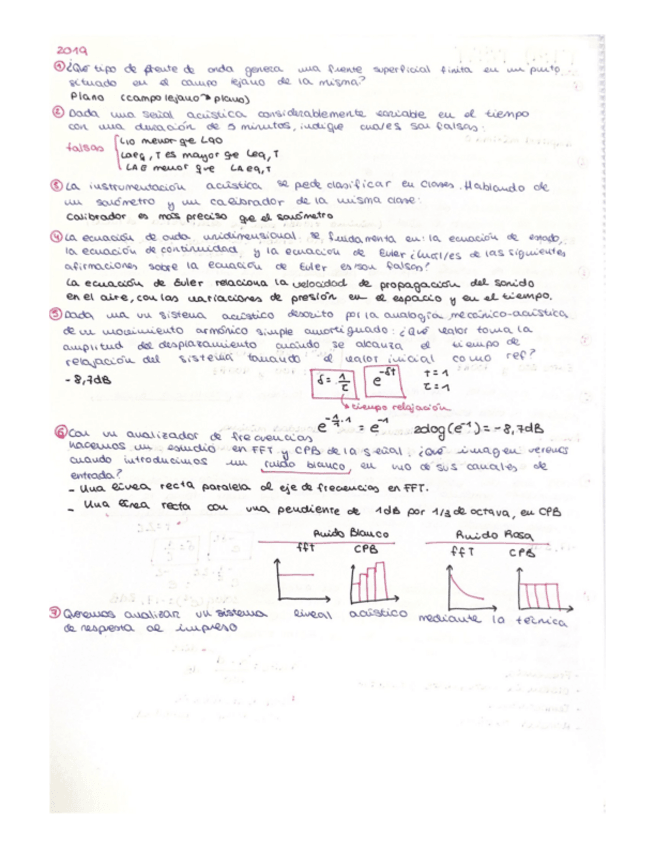 2019
① ¿Qué tipo de frente de onda genera una fuente superficial finita en un punto
situado en el campo lejano de la misma?
Plano (campo lejano → plano)
② Dada una señal acústica considerablemente variable en el tiempo
con una duración de 5 minutos, indique cuál/es son falsas:
falsas
L10 menor qe L90
LAeq,T es mayor qe Leq,T
LAE menor que LAeq,T
③ La instrumentación acústica se pede clasificar en clases. Hablando de
un sonómetro y un calibrador de la misma clase:
Calibrador es más preciso qe el sonómetro
④ La ecuación de onda unidimensional se fundamenta en: la ecuación de estado,
la ecuación de continuidad, y la ecuación de Euler ¿cual/es de las siguientes
afirmaciones sobre la ecuación de Euler es/son falsas?
La ecuación de Euler relaciona la velocidad de propagación del sonido
en el aire, con las variaciones de presión en el espacio y en el tiempo.
⑤ Dada un sistema acústico descrito por la analogía mecánico-acústica
de un movimiento armónico simple amortiguado: ¿Qué valor toma la
amplitud del desplazamiento cuando se alcanza el tiempo de
relajación del sistema tomando el valor inicial como ref?
- 8,7dB
δ = 1/τ
e^-δt
t = 1
τ = 1
tiempo relajación
e^-1/1·1 = e^-1 20log(e^-1) = - 8,7dB
⑥ Con un analizador de frecuencias
hacemos un estudio en FFT y CPB de la señal. ¿Qué imagen veremos
cuando introducimos un ruido blanco, en uno de sus canales de
entrada?
- Una línea recta paralela al eje de frecuencias en FFT.
- Una línea recta con una pendiente de 1dB por 1/3 de octava, en CPB
Ruido Blanco
FFT CPB
Ruido Rosa
FFT CPB
⑦ Queremos analizar un sistema lineal acústico mediante la técnica
de respuesta al impulso